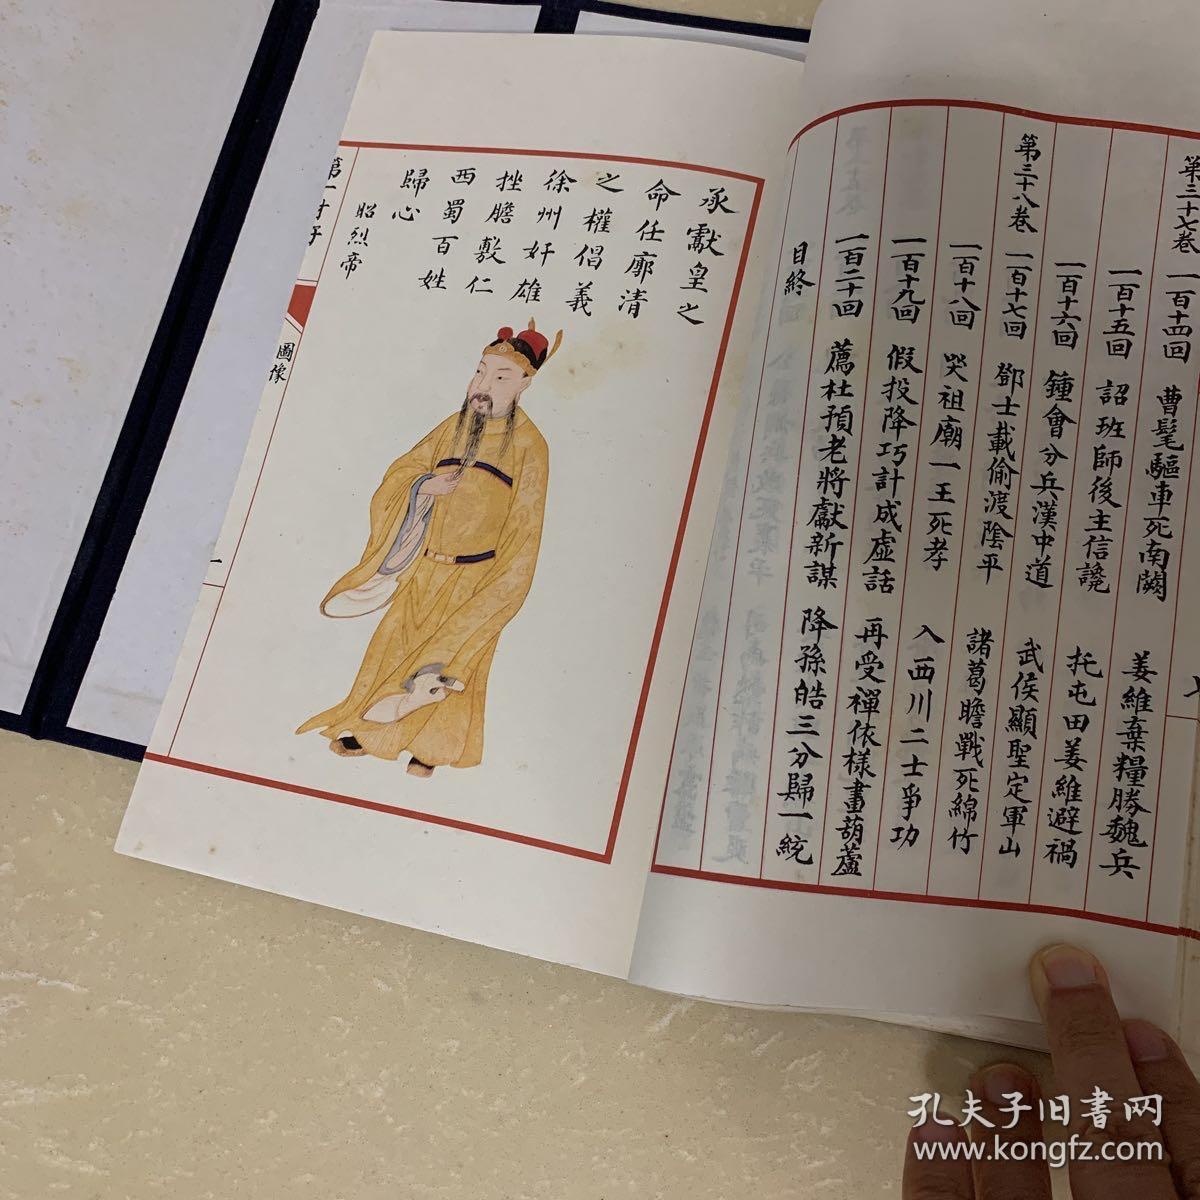 第三十七卷 一百十四回 曹髦驅車死南闕 姜維棄糧勝魏兵
一百十五回 詔班師後主信讒 托屯田姜維避禍
第三十八卷 一百十六回 鍾會分兵漢中道 武侯顯聖定軍山
一百十七回 鄧士載偷渡陰平 諸葛瞻戰死綿竹
一百十八回 哭祖廟一王死孝 入西川二士爭功
一百十九回 假投降巧計成虛話 再受禪依樣畫葫蘆
一百二十回 薦杜預老將獻新謀 降孫皓三分歸一統
目終
承獻皇之
命任廓清
之權倡義
徐州奸雄
挫膽敷仁
西蜀百姓
歸心
昭烈帝
第一才子
圖像
一
孔夫子旧书网
www.kongfz.com